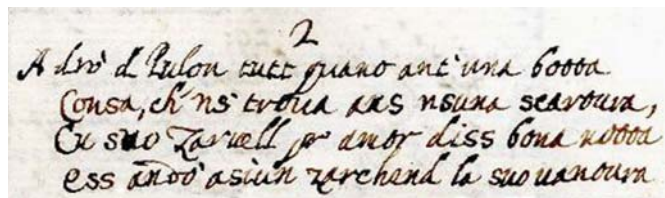 2
A drō d Pulon tutt quant ant' una botta
Consa, ch' n s' trova ans nsuna scartoura,
Cu suo Zarvell per amor diss bona notta
ess andò asiun zarchend la suo uanoura